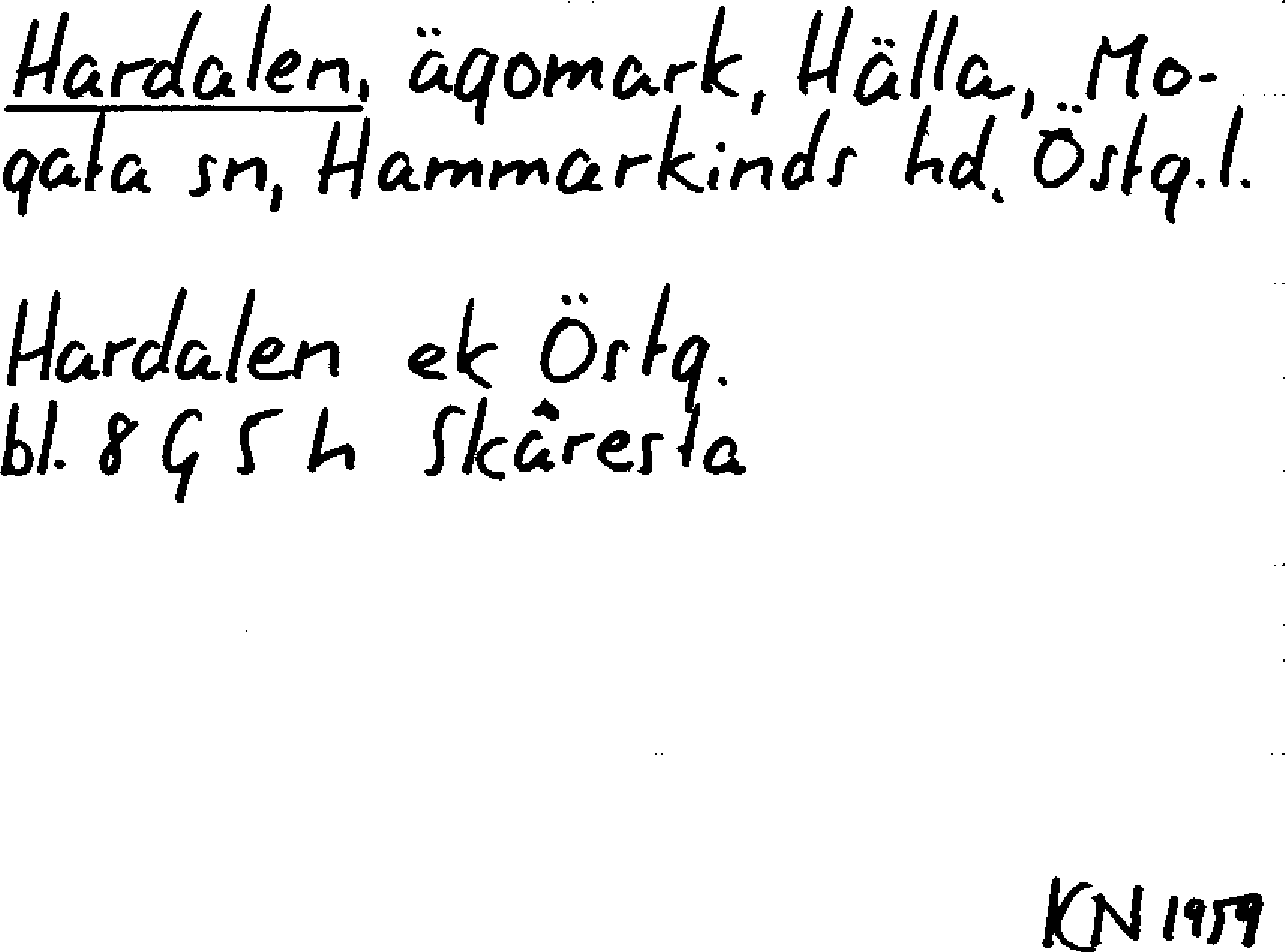 Hardalen, ägomark, Hälla, Mo-
gata sn, Hammarkinds hd. Östg.l.
Hardalen ek Östg.
bl. 8 G 5 h Skåresta
KN 1959